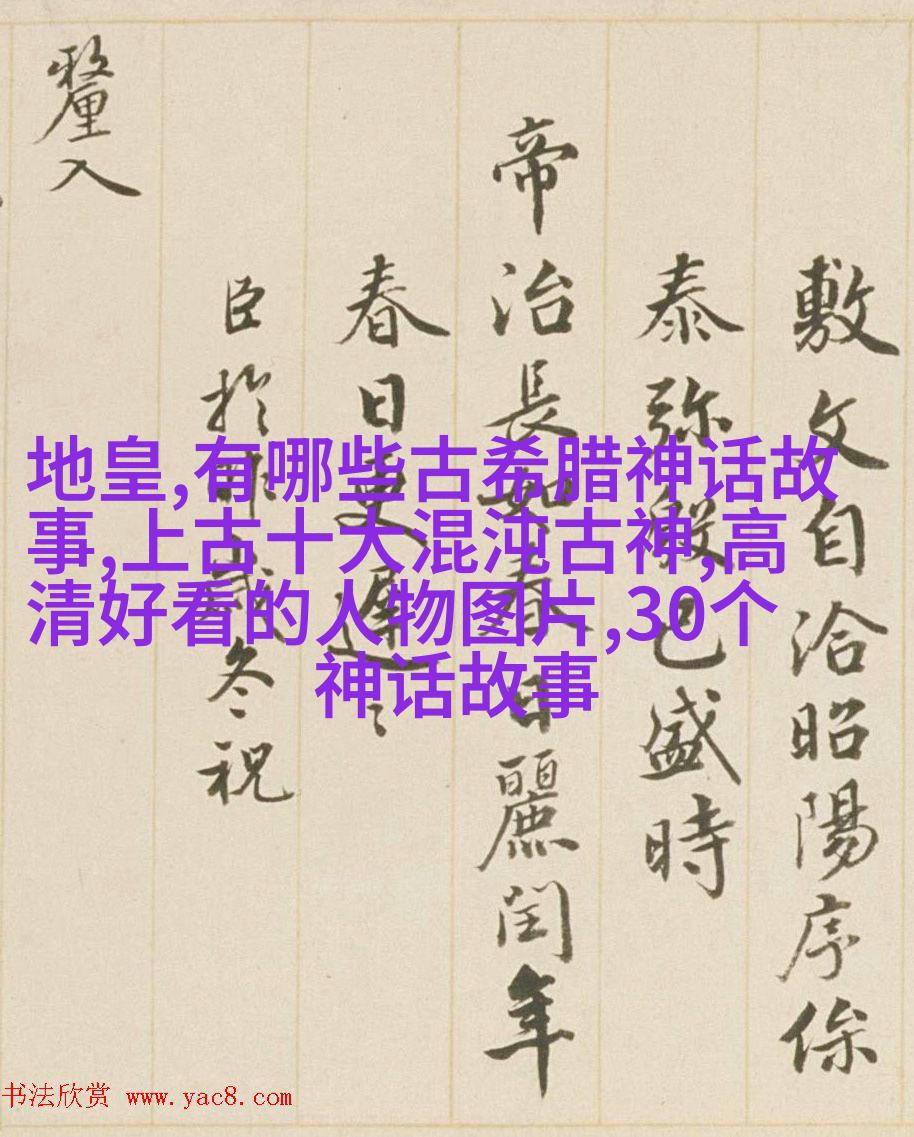 敷文自洽昭陽序儵
泰弥殷已盛時
帝治長如春日麗閏年
春日更遲〻
臣於
冬祝
釐入
地皇,有哪些古希腊神话故
事,上古十大混沌古神,高
清好看的人物图片,30个
神话故事
书法欣赏 www.yac8.com